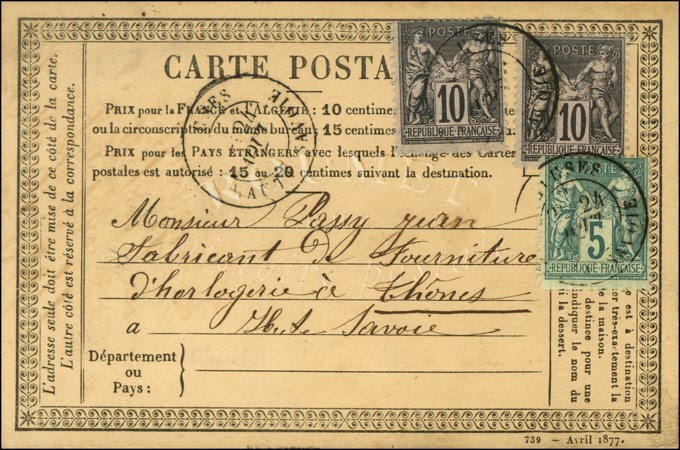 CARTE POSTA
PRIX pour la FRANCE et l'ALGÉRIE : 10 centimes
ou la circonscription du même bureau; 15 centimes
PRIX pour les PAYS ÉTRANGERS avec lesquels l'échange des Cartes
postales est autorisé : 15 ou 20 centimes suivant la destination.
Monsieur Passy jean
Fabricant de Fourniture
d'horlogerie à Thônes
a Hte Savoie
Département
ou
Pays :
L'adresse seule doit être mise de ce côté de la carte.
L'autre côté est réservé à la correspondance.
POSTE
10
REPUBLIQUE FRANÇAISE
POSTE
10
REPUBLIQUE FRANÇAISE
POSTE
5
REPUBLIQUE FRANÇAISE
est à
destination
très-exactement la
la maison.
destinée pour une
indiquer le nom du
il la dessert.
739 — Avril 1877.